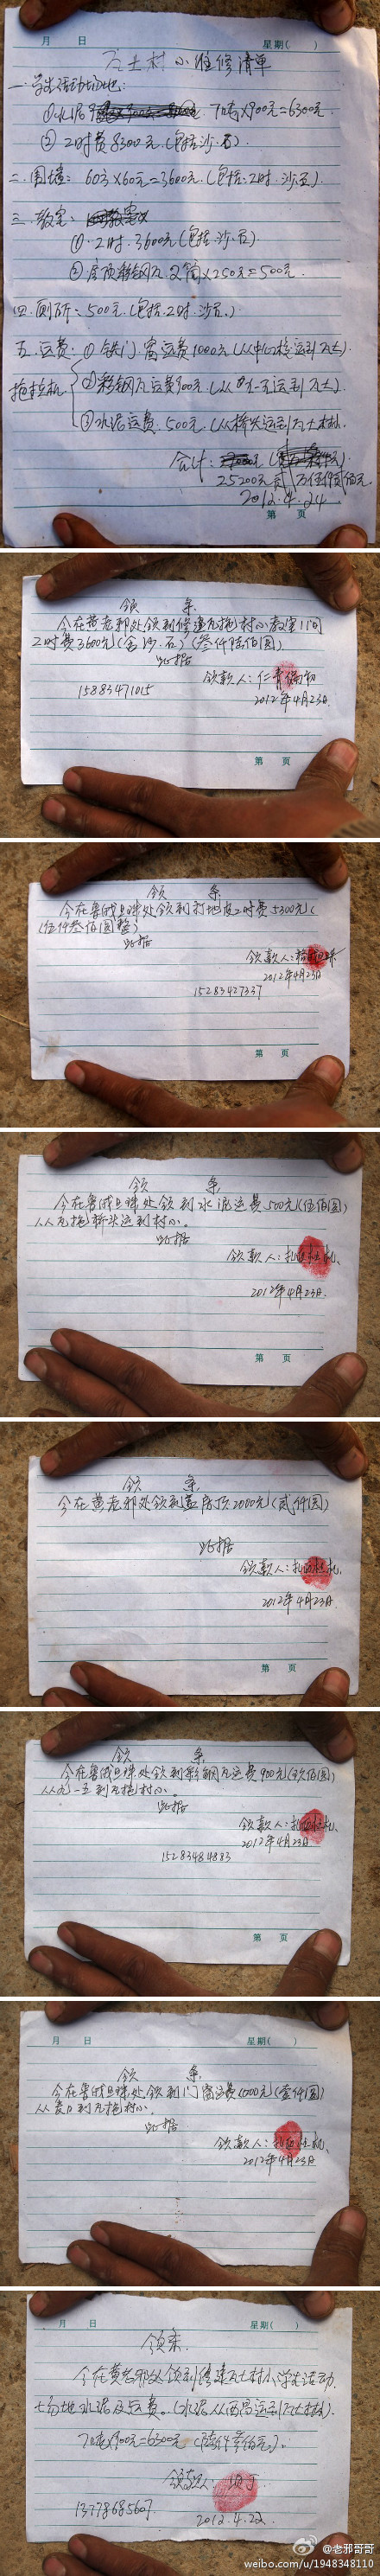 月 日 星期( )
瓦土村小维修清单
一.学生活动场地:
①水泥 7吨×900元=6300元.
②工时费8300元.(包括沙.石)
二.围墙: 60方×60元=3600元.(包括.工时.沙.石).
三.教室:
①.工时.3600元(包括.沙.石)
②房顶彩钢瓦 ×250元=500元.
四.厕所:500元(包括.工时.沙石.)
五.运费:①铁门.窗运费1000元(从中心校运到瓦土)
拖拉机
②彩钢瓦运费900元(从九一五运到瓦土).
③水泥运费.500元.(从桥头运到瓦土村).
合计:
25200元 贰万伍仟贰佰元.
2012.4.24
第 页
领 条
今在黄老邪处领到修建瓦拖村小教室11间
工时费3600元(含沙.石)(叁仟陆佰圆)
此据
领款人:仁青
15883471015
2012年4月23日.
第 页
领 条
今在鲁绒旦珠处领到打地皮工时费5300元(
(伍仟叁佰圆整)
此据
领款人:
2012年4月23日
15283427337
第 页
领 条
今在鲁绒旦珠处领到水泥运费500元(伍佰圆)
从瓦拖桥头运到村小。
此据
领款人:扎西
2012年4月23日.
第 页
领 条
今在黄老邪处领到盖房顶2000元(贰仟圆)
此据
领款人:扎西
2012年4月23日.
第 页
领 条
今在鲁绒旦珠处领到彩钢瓦运费900元(玖佰圆)
从九一五到瓦拖村小。
此据
领款人:扎西
2012年4月23日
15283484883
第 页
月 日 星期( )
领 条
今在鲁绒旦珠处领到门窗运费1000元(壹仟圆)
从 到瓦拖村小.
此据
领款人:扎西
2012年4月23日
月 日 星期( )
领条.
今在黄老邪处领到修建瓦土村小学生活动
场地水泥及运费。(水泥从 运到瓦土村).
7吨×900元=6300元 (陆仟叁佰元).
领款人.
13778685607
2012.4.22.
@老邪哥哥
weibo.com/u/1948348110